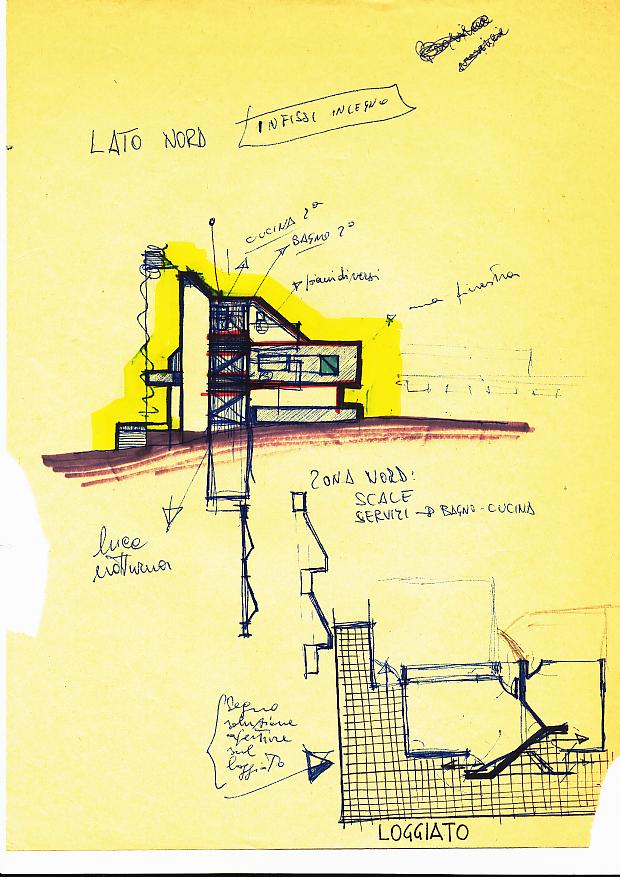 LATO NORD
INFISSI IN LEGNO
CUCINA 2ª
BAGNO 2º
piani diversi
finestra
ZONA NORD:
SCALE
SERVIZI → BAGNO - CUCINA
luce
notturna
Segno
soluzione
sul
loggiato
LOGGIATO